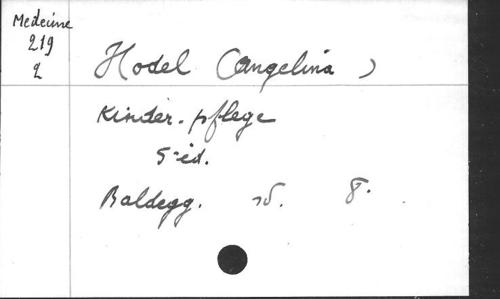 Medecine
219
2
Hodel (Angelina)
Kinder-pflege
5 ed.
Baldegg. sd. 8.